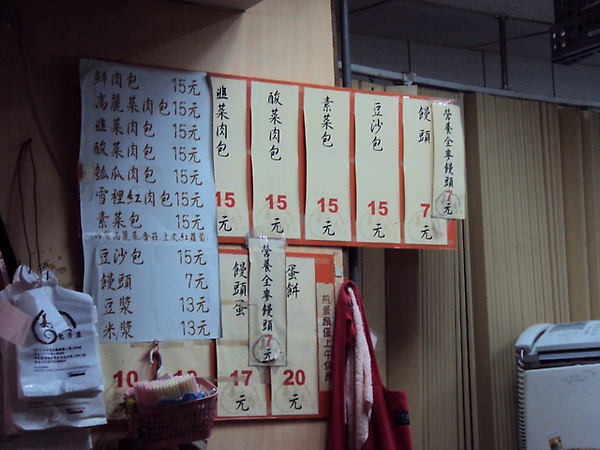 鮮肉包 15元
高麗菜肉包 15元
韭菜肉包 15元
酸菜肉包 15元
瓠瓜肉包 15元
雪裡紅肉包 15元
素菜包 15元
豆沙包 15元
饅頭 7元
豆漿 13元
米漿 13元
韭菜肉包 15元
酸菜肉包 15元
素菜包 15元
豆沙包 15元
饅頭 7元
營養全麥饅頭 7元
10
饅頭蛋 17元
營養全麥饅頭 7元
蛋餅 20元